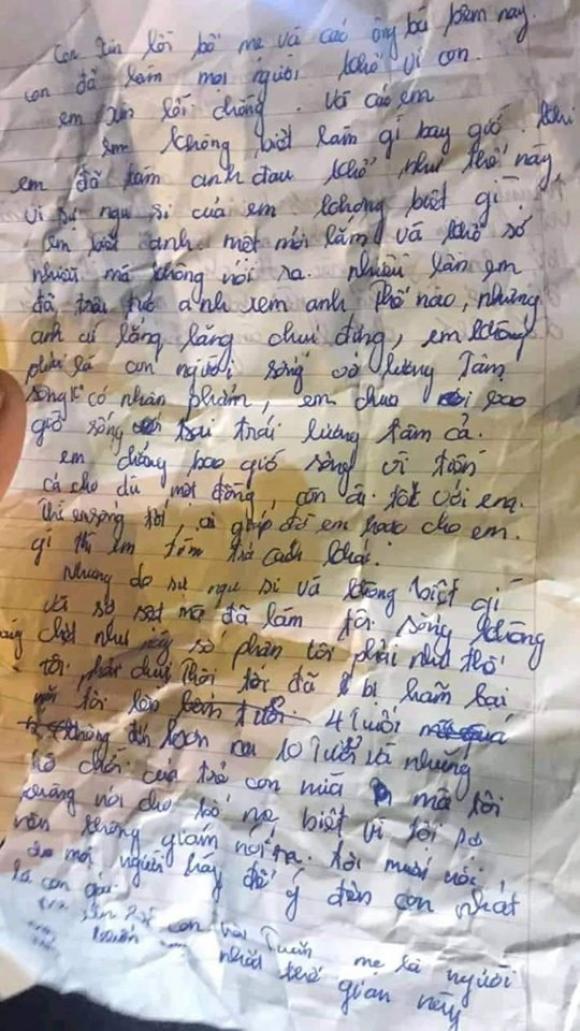 Con xin lỗi bố mẹ và các ông bà hôm nay.
con đã làm mọi người khổ vì con.
em xin lỗi chồng. và các em
em không biết làm gì bay giờ. khi
em đã làm anh đau khổ như thế này
vì sự ngu si của em không biết gì.
em biết anh mệt mỏi lắm và khổ sở
nhiều mà không nói ra. nhiều lần em
đã anh xem anh thế nào, nhưng
anh cứ lẳng lặng chịu đựng, em không
phải là con người sống vô lương tâm
sống có nhân phẩm, em chưa bao
giờ sống trái lương tâm cả.
em chẳng bao giờ sống vì tiền
cả cho dù một đồng, còn ai tốt với em.
thì em sống tốt, ai giúp đỡ em hoặc cho em.
gì thì em tìm trả cách khác.
nhưng do sự ngu si và không biết gì
và sợ sệt mà đã làm tôi sống không
chết như này số phận tôi phải như thế
tôi phải chịu thôi tôi đã bị hãm hại
tôi lên 4 tuổi
không đến hơn 10 tuổi và những
trò chơi của trẻ con nữa mà tôi
không nói cho bố mẹ biết vì tôi sợ
vẫn không giám nói ra. tôi muốn nói
mọi người hãy để ý đến con nhất
là con gái.
xin lỗi con trai Tuấn mẹ là người
nhất thế gian này